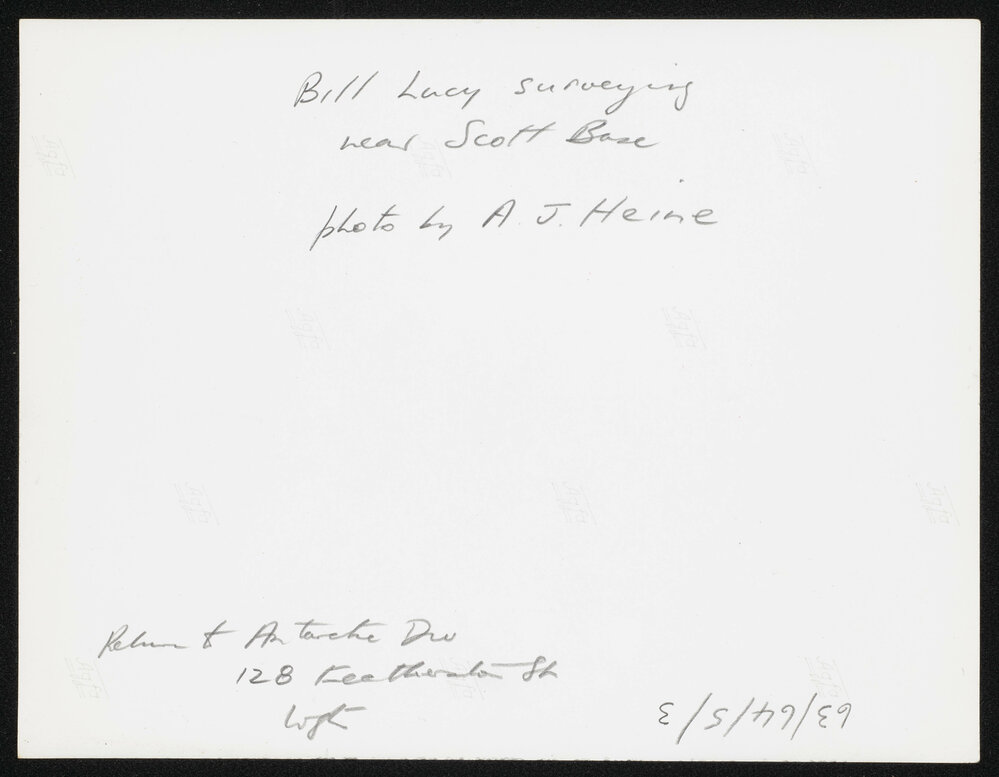 Bill Lucy surveying
near Scott Base
photo by A. J. Heine
Return to Antarctic Div
128 Featherston St
Wgtn
63/64/5/3